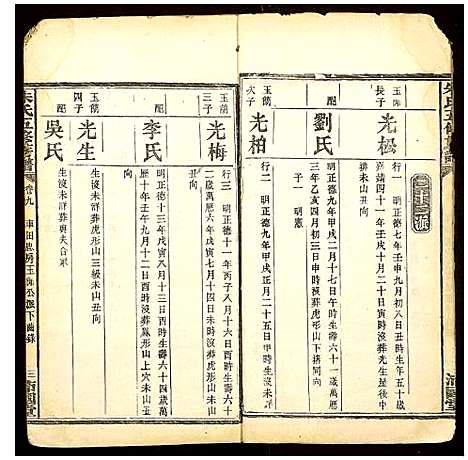 朱氏五修族譜
派
玉飾
長子
光松
行一 明正德七年壬申九月初一日巳時生年五十歲
嘉靖四十一年壬戌十月二十日戌時沒葬光星後中
排未山丑向
配
劉氏
明正德九年甲戌正月二十七日時生壽六十一歲萬
三年乙亥四月初三日申時沒葬虎形山下排同向
子一 明憲
次子
光柏
行二 明正德九年甲戌正月二十五日申時沒葬
玉飾
三子
光梅
行三 明正德十一年丙子八月十六日酉時生壽六十
二歲萬曆六年戊寅七月初八日未時沒葬虎形山未
丑向
配
李氏
明正德十三年戊寅八月十三日酉時生壽六十四歲萬
曆十年壬午九月十二日酉時沒葬虎形山上穴未山丑
向
玉飾
四子
光生
生沒未詳葬虎形山三級未山丑向
配
吳氏
生沒未詳葬與夫合冢
朱氏五修族譜
卷九
玉飾公派下齒錄
三